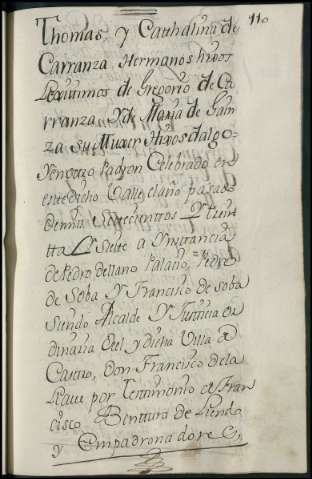 110
Thomas y Cathalina de
Carranza, Hermanos hixos
Lexitimos de Gregorio de Ca
rranza, Y de Maria de Gain
za su Muxer Hixos dalgo -
Y en otro Padron Celebrado en
este dicho Valle el año pasado
de mil Settecienttos Y ttrein
tta Y Siette a Ynstancia
de Pedro de llano Palacio, Pedro
de Soba Y Francisco de Soba
Siendo Alcalde Y Justicia or
dinaria de el y dicha Villa de
Castro, Don Francisco de la
por Testimonio de Fran
cisco Benttura de Liendo
y Empadronadores